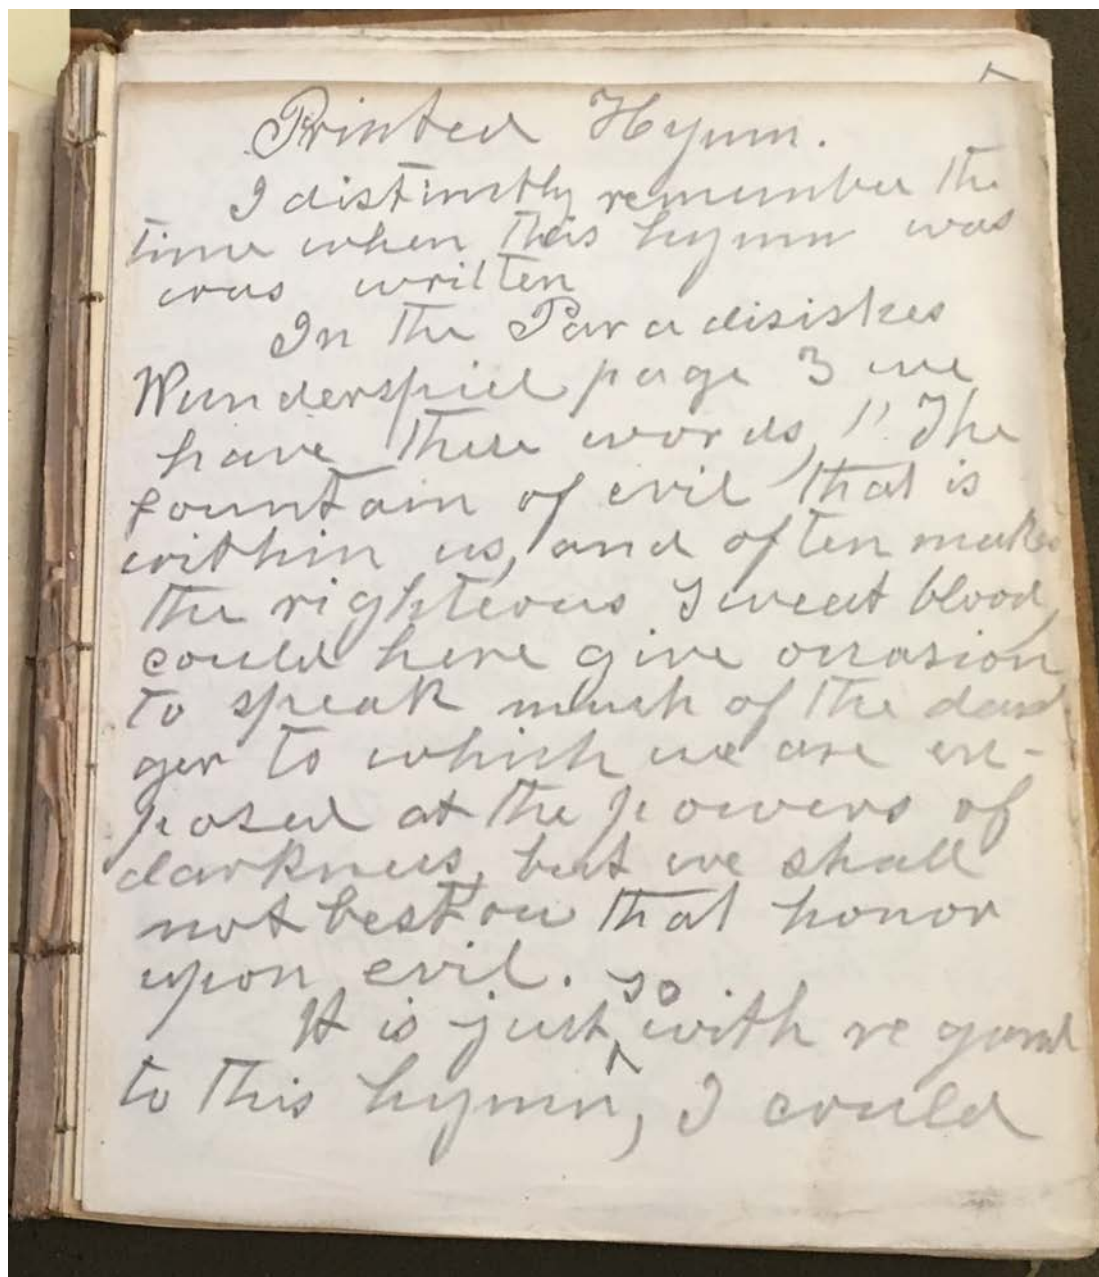 Printed Hymn.
I distinctly remember the
time when this hymn was
was written
In the Paradisiskes
Wunderspiel page 3 we
have these words, "The
fountain of evil that is
within us, and often makes
the righteous sweat blood,
could here give occasion
to speak much of the dan-
ger to which we are ex-
posed at the powers of
darkness, but we shall
not bestow that honor
upon evil.
It is just so with regard
to this hymn, I could